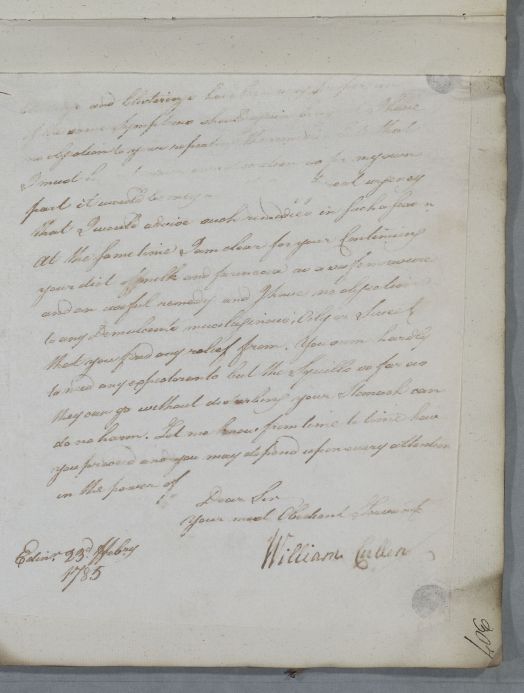 and Blistering have been very proper and
if the same Symptoms should again I have
no objection to your repeating the that
I must my own
part it would be very urgency
that I would advise such remedies in such a Season
At the same time I am clear for your Continuing
your diet of milk and farinacea as a safe measure
and an useful remedy and I have no objection
to any Demulcents mucilaginous, Oily or Sweet
that you find any relief from. You seem hardly
to need any expectorants but the Squills so far as
they can go without disturbing your Stomach can
do no harm. Let me know from time to time how
you proceed and you may depend upon every attention
in the power of
Dear Sir
Your most Obedient Servant
William Cullen
Edinr. 23d. ffebry
1785